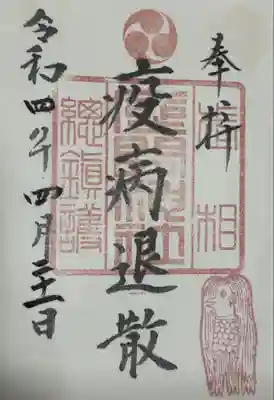 奉拝
疫病退散
總鎮護
令和四年四月二十一日